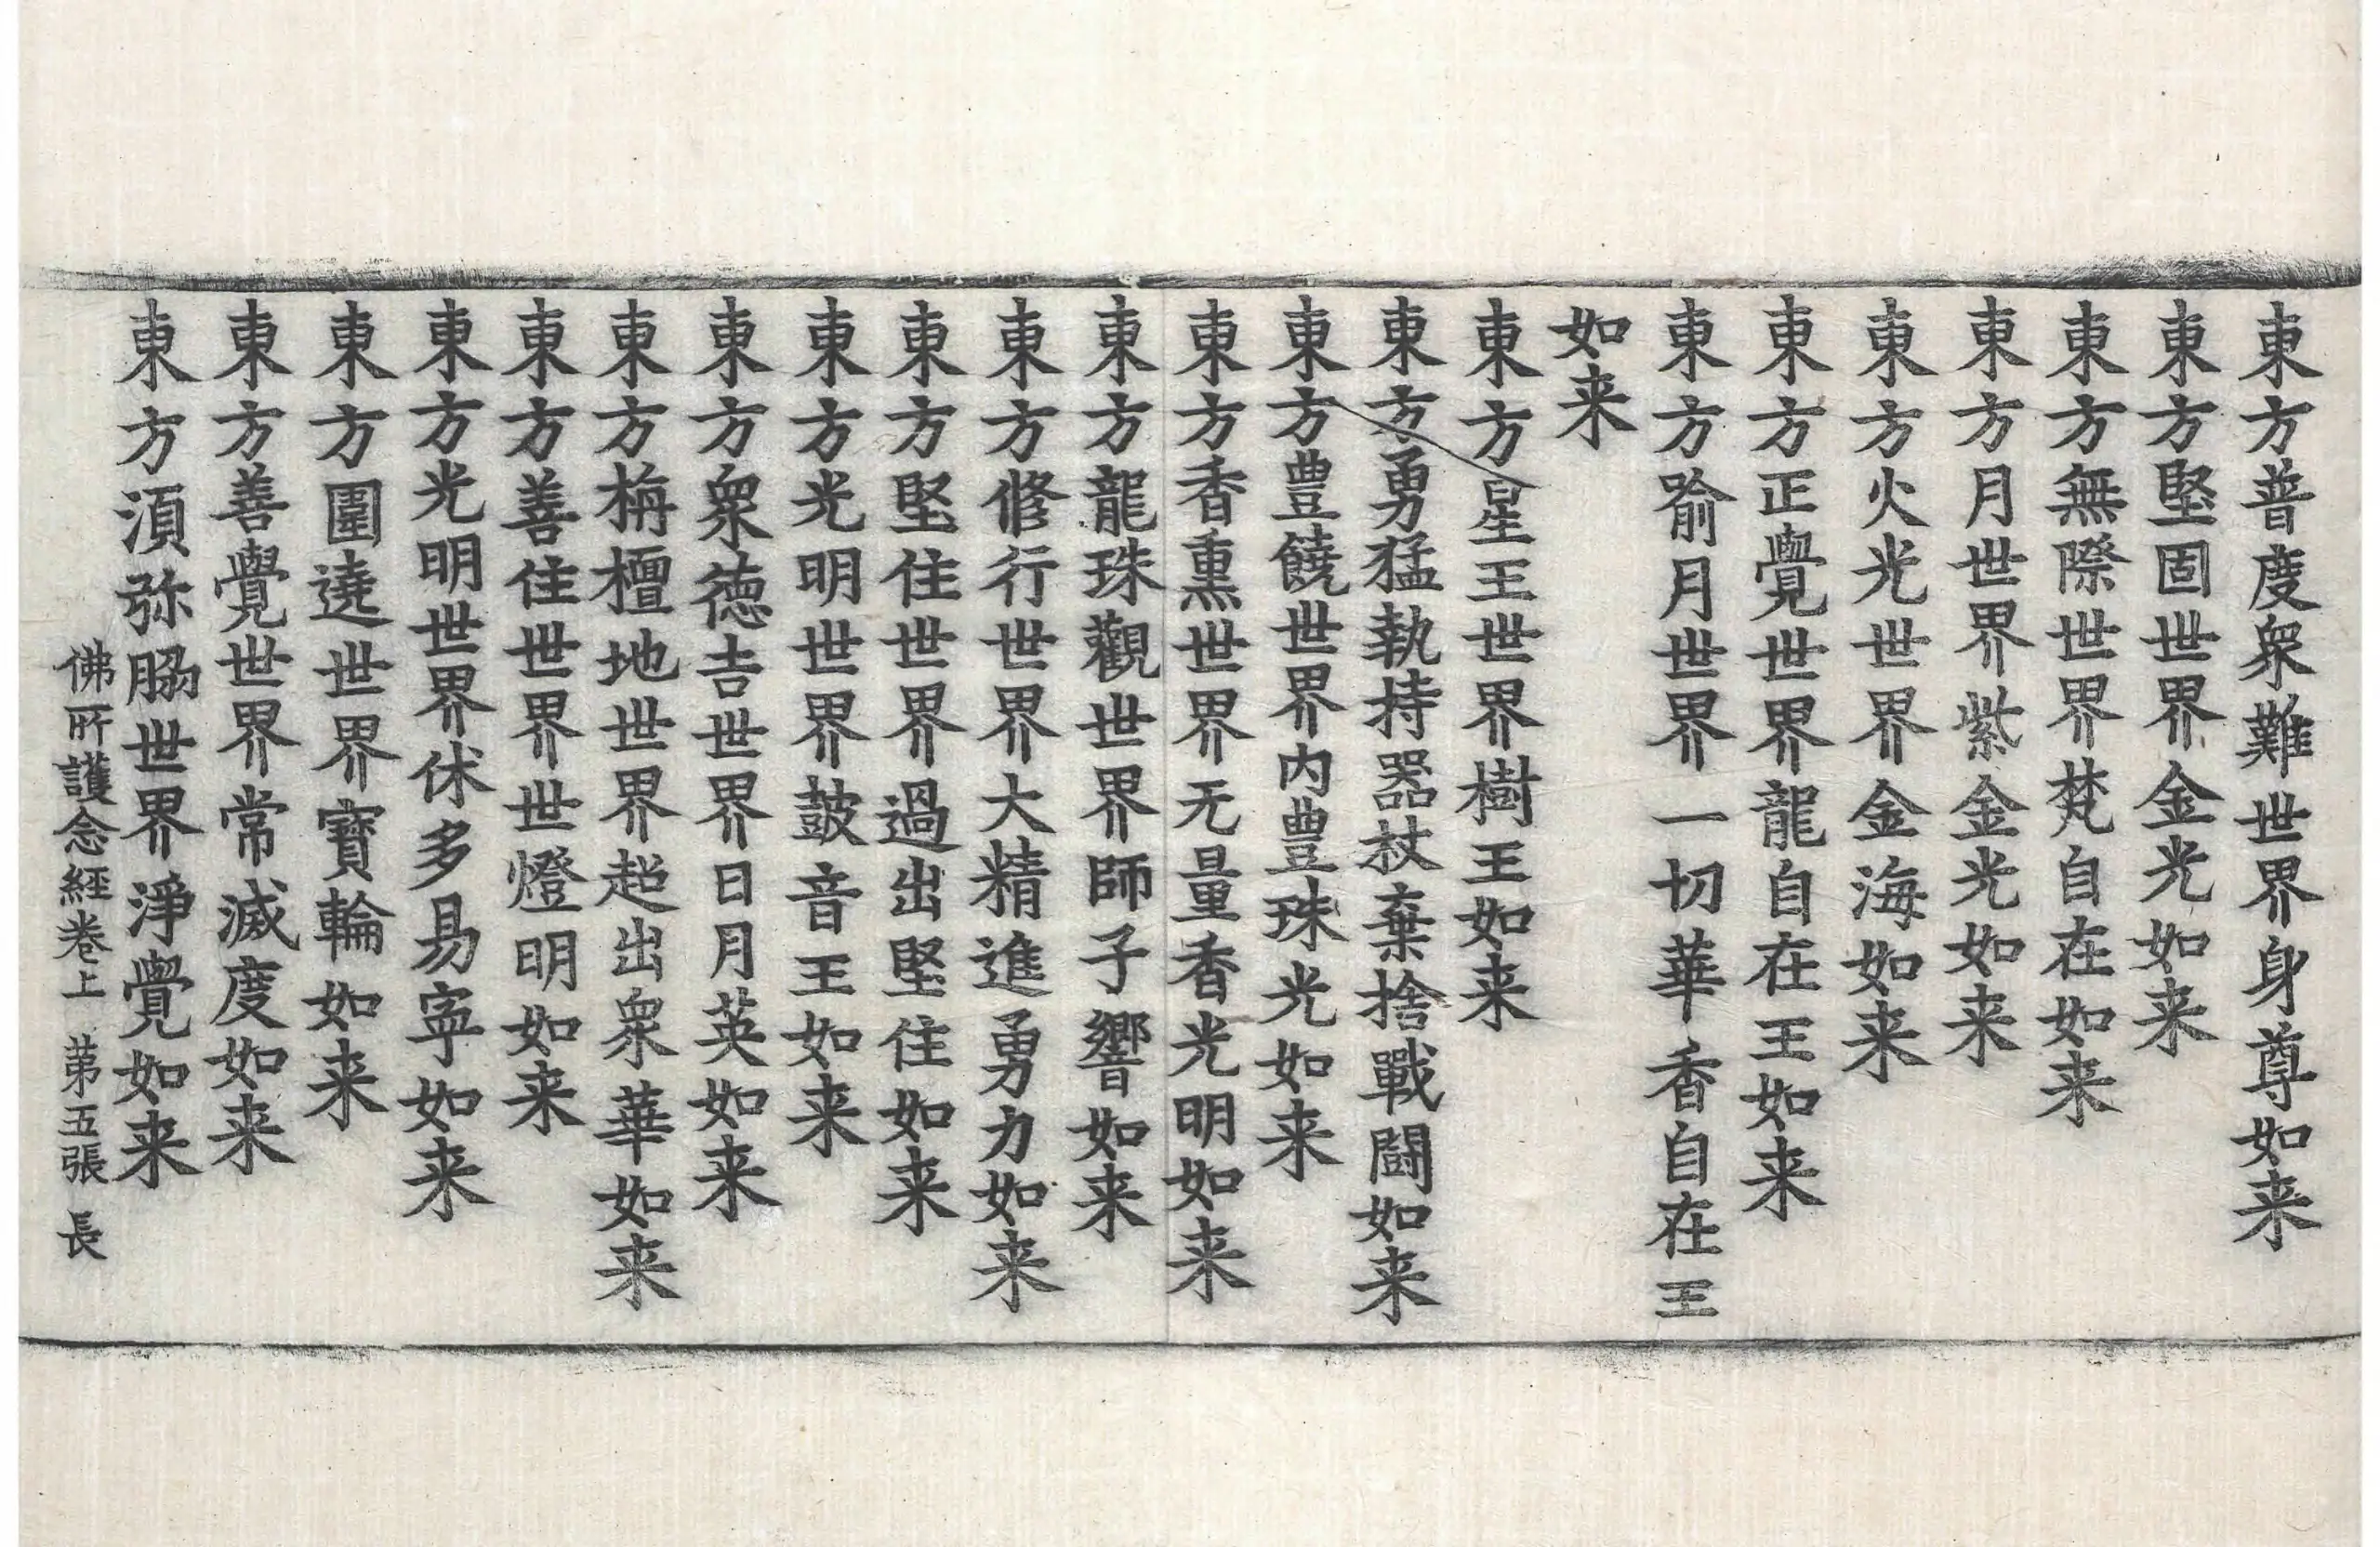 東方普度衆難世界身尊如来
東方堅固世界金光如来
東方無際世界梵自在如来
東方月世界紫金光如来
東方火光世界金海如来
東方正覺世界龍自在王如来
東方喻月世界一切華香自在王
如来
東方星王世界樹王如来
東方勇猛執持器杖棄捨戰鬪如来
東方豊饒世界内豊珠光如来
東方香熏世界无量香光明如来
東方龍珠觀世界師子響如来
東方修行世界大精進勇力如来
東方堅住世界過出堅住如来
東方光明世界鼓音王如来
東方衆德吉世界日月英如来
東方栴檀地世界超出衆華如来
東方善住世界世燈明如来
東方光明世界休多易寜如来
東方圍遶世界寳輪如来
東方善覺世界常滅度如来
東方湏弥脇世界淨覺如来
佛所護念經卷上 第五張 長